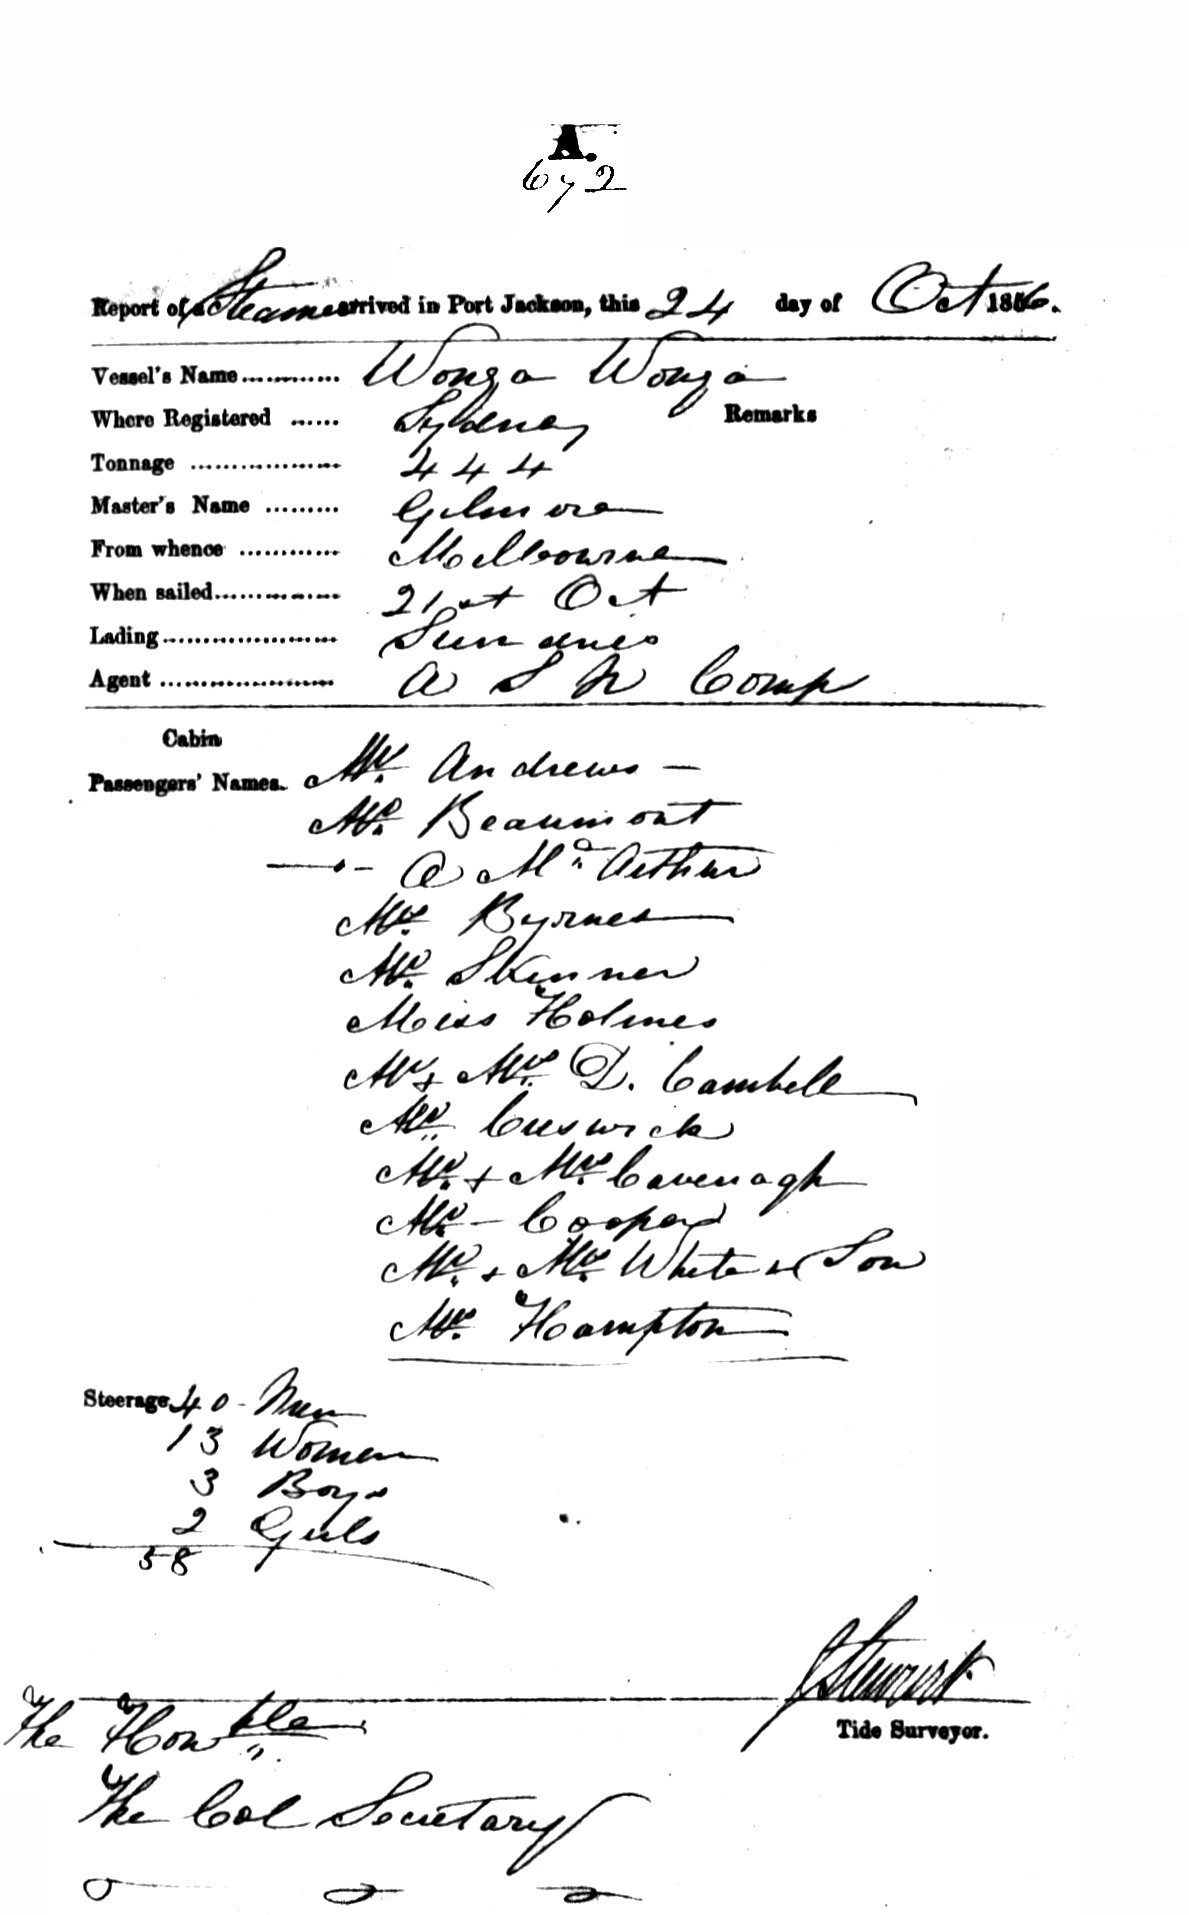 A.
672
Report of a Steamer arrived in Port Jackson, this 24 day of Oct 1856.
Vessel's Name............ Wonga Wonga
Where Registered ...... Sydney Remarks
Tonnage .................. 444
Master's Name ......... Gilmore
From whence ............ Melbourne
When sailed............... 21st Oct
Lading..................... Sundries
Agent ..................... A S N Comp
Cabin
Passengers' Names. Mr. Andrews —
Mr. Beaumont
—"— A Mc Arthur
Mrs. Byrnes
Mr. Skinner
Miss Holmes
Mr + Mrs. D. Cambell
Mr. Creswick
Mr. + Mrs. Cavenagh
Mr. — Cooper
Mr. + Mrs. White & Son
Mrs. Hampton
Steerage 40 - Men
13 Women
3 Boys
2 Girls
58
J Stewart
Tide Surveyor.
The Honble
The Col Secretary